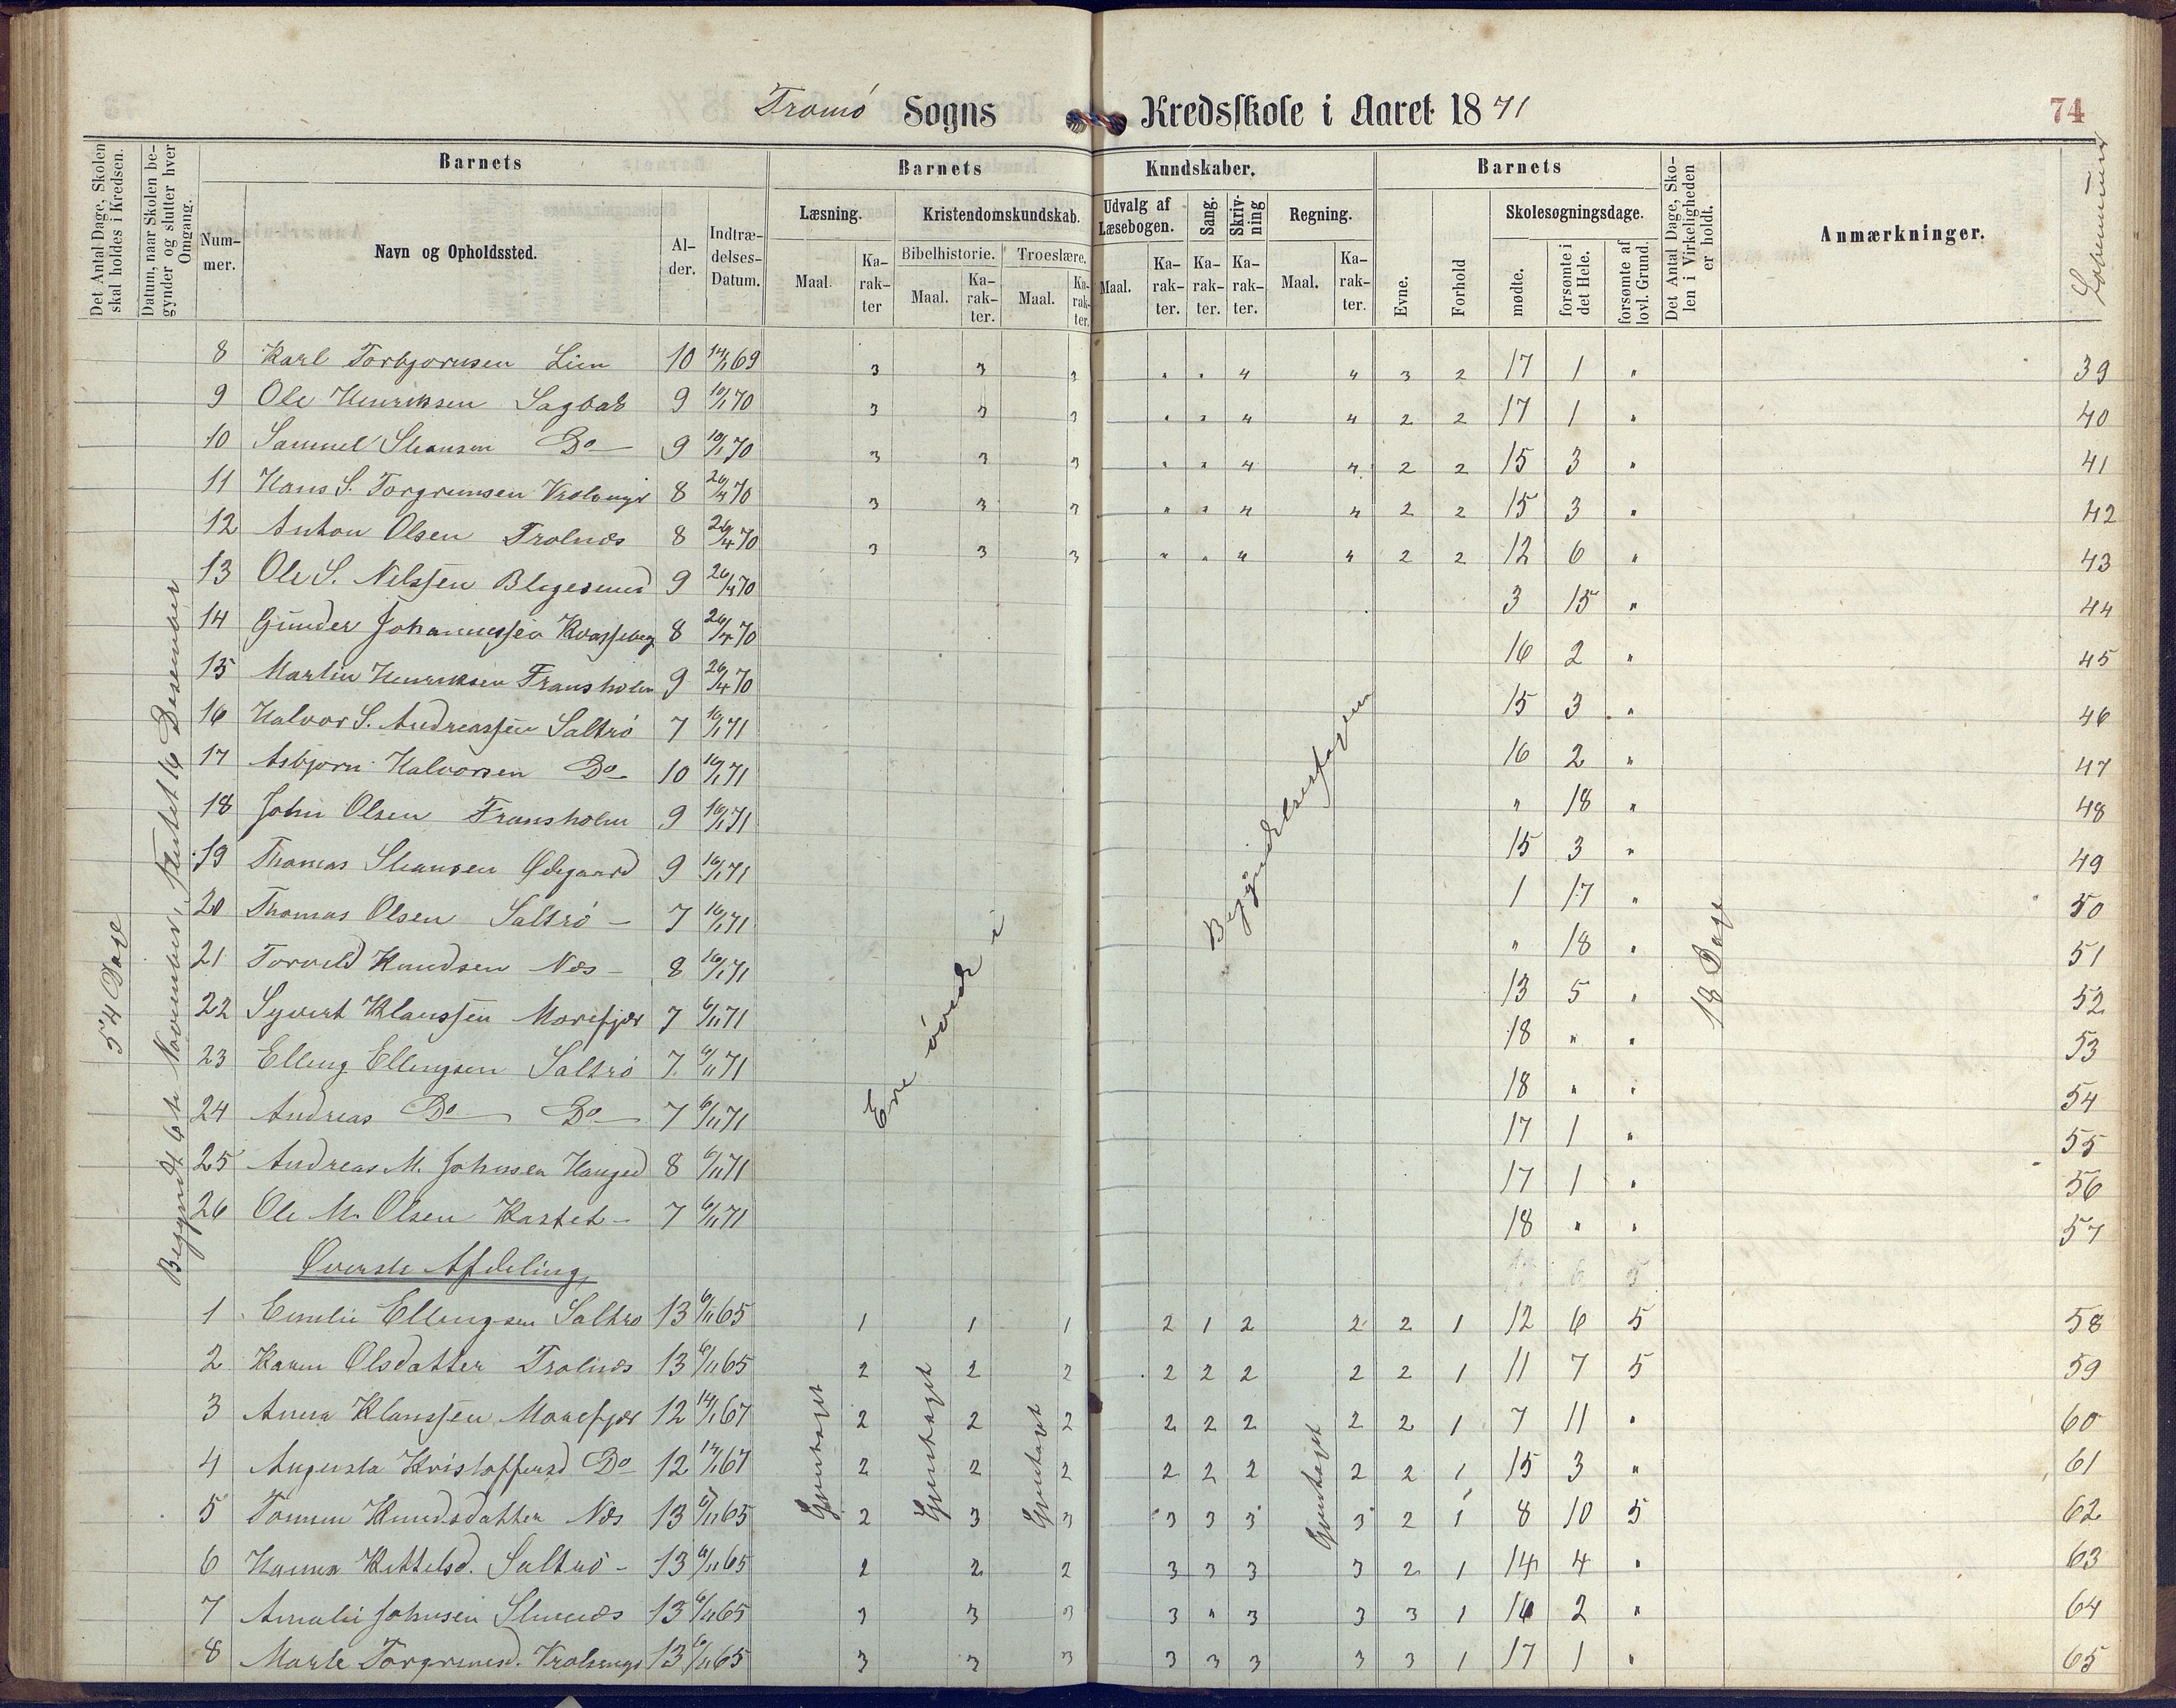 Tromö Sogns Kredsskole i Aaret 1871
74
Det Antal Dage, Skolen skal holdes i Kredsen.
Datum, naar Skolen begynder og slutter hver Omgang.
Barnets
Num-mer.
Navn og Opholdssted.
Al-der.
Indtræ-delses-Datum.
Barnets Kundskaber.
Læsning.
Maal.
Ka-rak-ter
Kristendomskundskab.
Bibelhistorie.
Maal.
Ka-rak-ter.
Troeslære.
Maal.
Ka-rak-ter.
Udvalg af Læsebogen.
Maal.
Ka-rak-ter.
Sang.
Ka-rak-ter.
Skriv-ning
Ka-rak-ter.
Regning.
Maal.
Ka-rak-ter.
Barnets
Evne.
Forhold
Skolesøgningsdage.
mødte.
forsømte i det Hele.
forsømte af lovl. Grund.
Det Antal Dage, Sko-len i Virkeligheden er holdt.
Anmærkninger.
Löbenumer
54 Dage
Begyndt 6te November, sluttet 16 Desember
18 Dage
Ere øvede i Begyndelsesfagene
8 Karl Torbjornsen Lien 10 14/1 69 3 3 3 " " 4 4 3 2 17 1 " 39
9 Ole Henriksen Sagbak 9 10/1 70 3 3 3 " " 4 4 2 2 17 1 " 40
10 Samuel Shansen Do 9 10/1 70 3 3 3 " " 4 4 2 2 15 3 " 41
11 Hans S. Torgrimsen 8 26/4 70 3 3 3 " " 4 4 2 2 15 3 " 42
12 Anton Olsen Trolnæs 8 26/4 70 3 3 3 " " 4 4 2 2 12 6 " 43
13 Ole S. Nilssen 9 26/4 70 3 15 " 44
14 Gunder Johannessen 8 26/4 70 16 2 " 45
15 Martin Henriksen Fransholm 9 26/4 70 15 3 " 46
16 Halvor S. Andreassen Saltrö 7 16/1 71 16 2 " 47
17 Asbjorn Halvorsen Do 10 16/1 71 " 18 " 48
18 John Olsen Fransholm 9 16/1 71 15 3 " 49
19 Thomas Shansen Ødegaard 9 16/1 71 1 17 " 50
20 Thomas Olsen Saltrö 7 16/1 71 " 18 " 51
21 Torvild Knudsen Næs 8 16/1 71 13 5 " 52
22 Syvert Klanssen Morefjær 7 6/11 71 18 " " 53
23 Elling Ellingsen Saltrö 7 6/11 71 18 " " 54
24 Andreas Do Do 7 6/11 71 17 1 " 55
25 Andreas M. Johnsen 8 6/11 71 17 1 " 56
26 Ole M. Olsen Kastet 7 6/11 71 18 " " 57
Øverste Afdeling
1 Emelie Ellingsen Saltrö 13 6/11 65 1 1 1 2 1 2 2 2 1 12 6 5 58
2 Karen Olsdatter Trolnæs 13 6/11 65 2 2 2 2 2 2 2 2 1 11 7 5 59
3 Anna Klanssen Morefjær 12 14/1 67 2 2 2 2 2 2 2 2 1 7 11 " 60
4 Augusta Kristoffersd Do 12 14/1 67 2 2 2 2 2 2 2 2 1 15 3 " 61
5 Tomine Knudsdatter Næs 13 6/11 65 2 3 3 3 3 3 3 2 1 8 10 5 62
6 Hanna Kittelsd. Saltrö 13 6/11 65 2 2 2 3 3 3 3 2 1 14 4 " 63
7 Amalie Johnsen 13 6/11 65 3 3 3 3 " 3 3 3 1 16 2 " 64
8 Marte Torgrimsd. 13 6/11 65 3 3 3 3 3 3 3 3 1 17 1 " 65
Gjentaget
Gjentaget
Gjentaget
Gjentaget